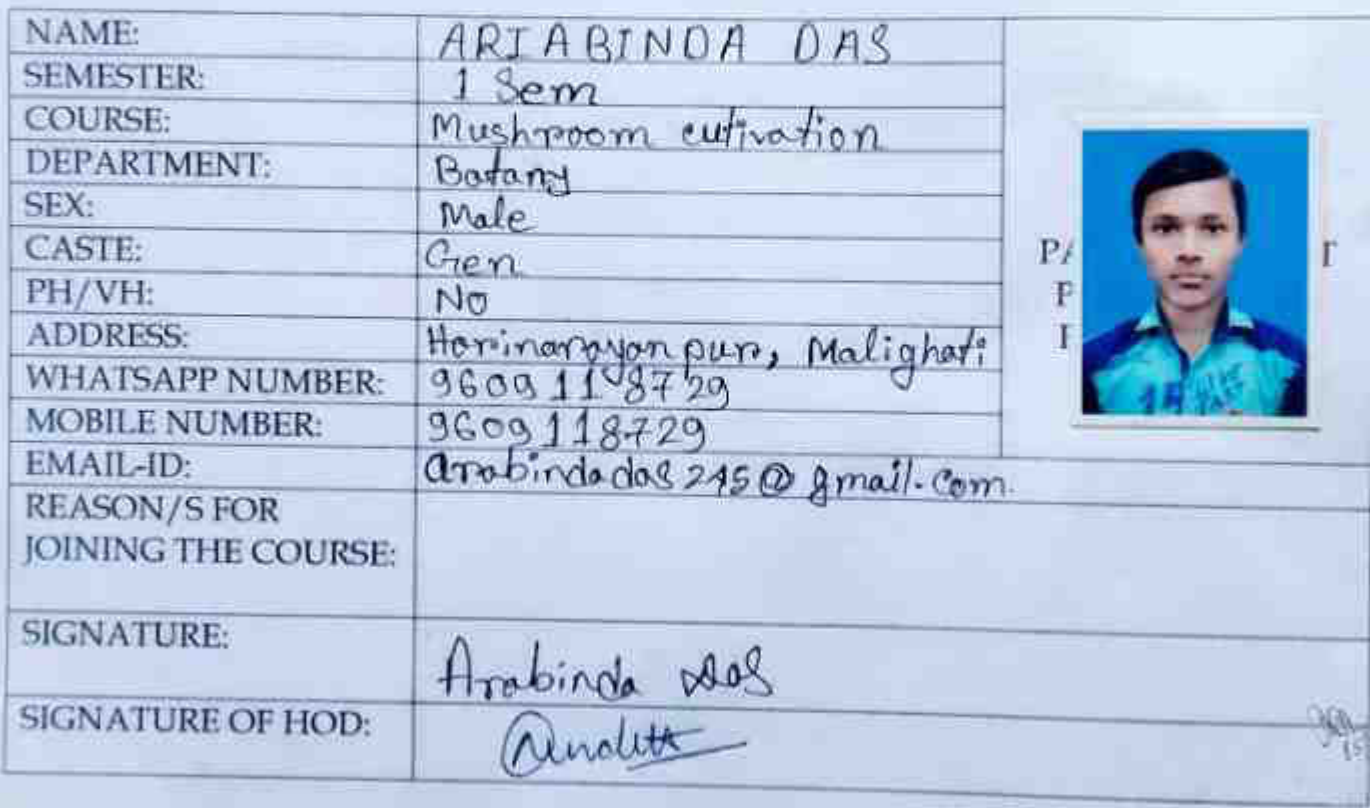 NAME: ARIABINDA DAS
SEMESTER: 1 Sem
COURSE: Mushroom cutivation
DEPARTMENT: Botany
SEX: Male
CASTE: Gen
PH/VH: NO
ADDRESS: Harinarayanpur, Malighati
WHATSAPP NUMBER: 9609118729
MOBILE NUMBER: 9609118729
EMAIL-ID: arabindadas245@gmail.com
REASON/S FOR
JOINING THE COURSE:
SIGNATURE: Arabinda Das
SIGNATURE OF HOD: